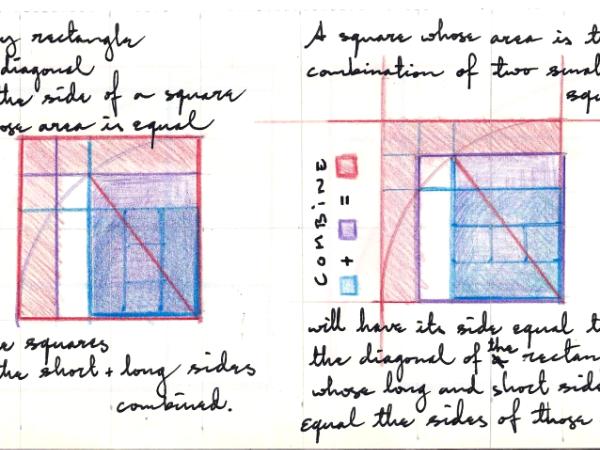 y rectangle
diagonal
the side of a square
ose area is equal
e squares
the short + long sides
combined.
A square whose area is t
combination of two smal
squ
COMBINE
=
+
will have its side equal t
the diagonal of the rectan
whose long and short side
equal the sides of those